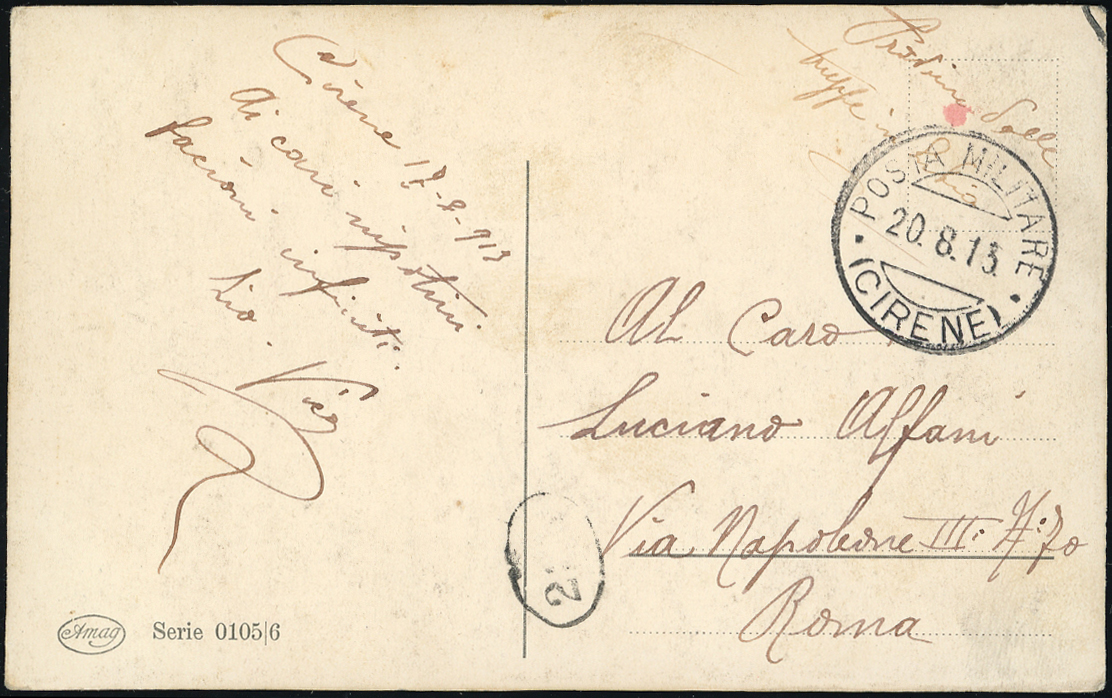 Cirene 17-8-913
Ai cari nipotini
bacioni infiniti.
Zio Vico
truppe in
Libia
POSTA MILITARE
20.8.13.
(CIRENE)
Al Caro
Luciano Alfani
Via Napoleone III: N: 70
Roma
2:
Amag
Serie 0105|6